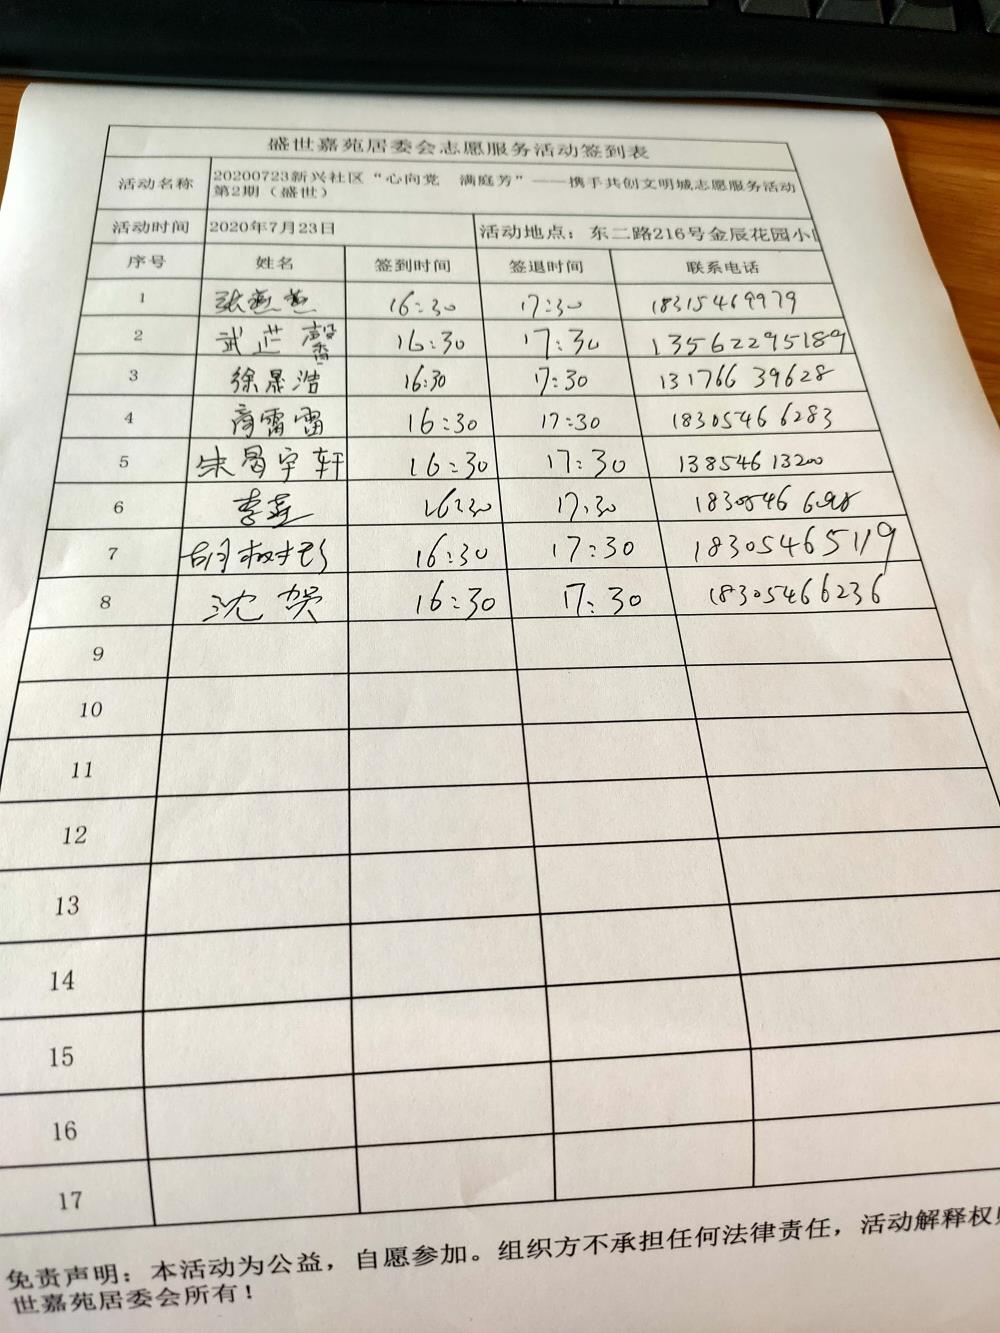 盛世嘉苑居委会志愿服务活动签到表
活动名称 20200723新兴社区“心向党 满庭芳”——携手共创文明城志愿服务活动
第2期（盛世）
活动时间 2020年7月23日 活动地点：东二路216号金辰花园小
序号 姓名 签到时间 签退时间 联系电话
1 张燕燕 16:30 17:30 18315469979
2 武芷馨 16:30 17:30 13562295189
3 徐晟浩 16:30 17:30 13176639628
4 商雷雷 16:30 17:30 18305466283
5 朱昌宇轩 16:30 17:30 13854613200
6 李莲 16:30 17:30 1830546
7 胡树彬 16:30 17:30 18305465119
8 沈贺 16:30 17:30 18305466236
9
10
11
12
13
14
15
16
17
免责声明：本活动为公益，自愿参加。组织方不承担任何法律责任，活动解释权
世嘉苑居委会所有！